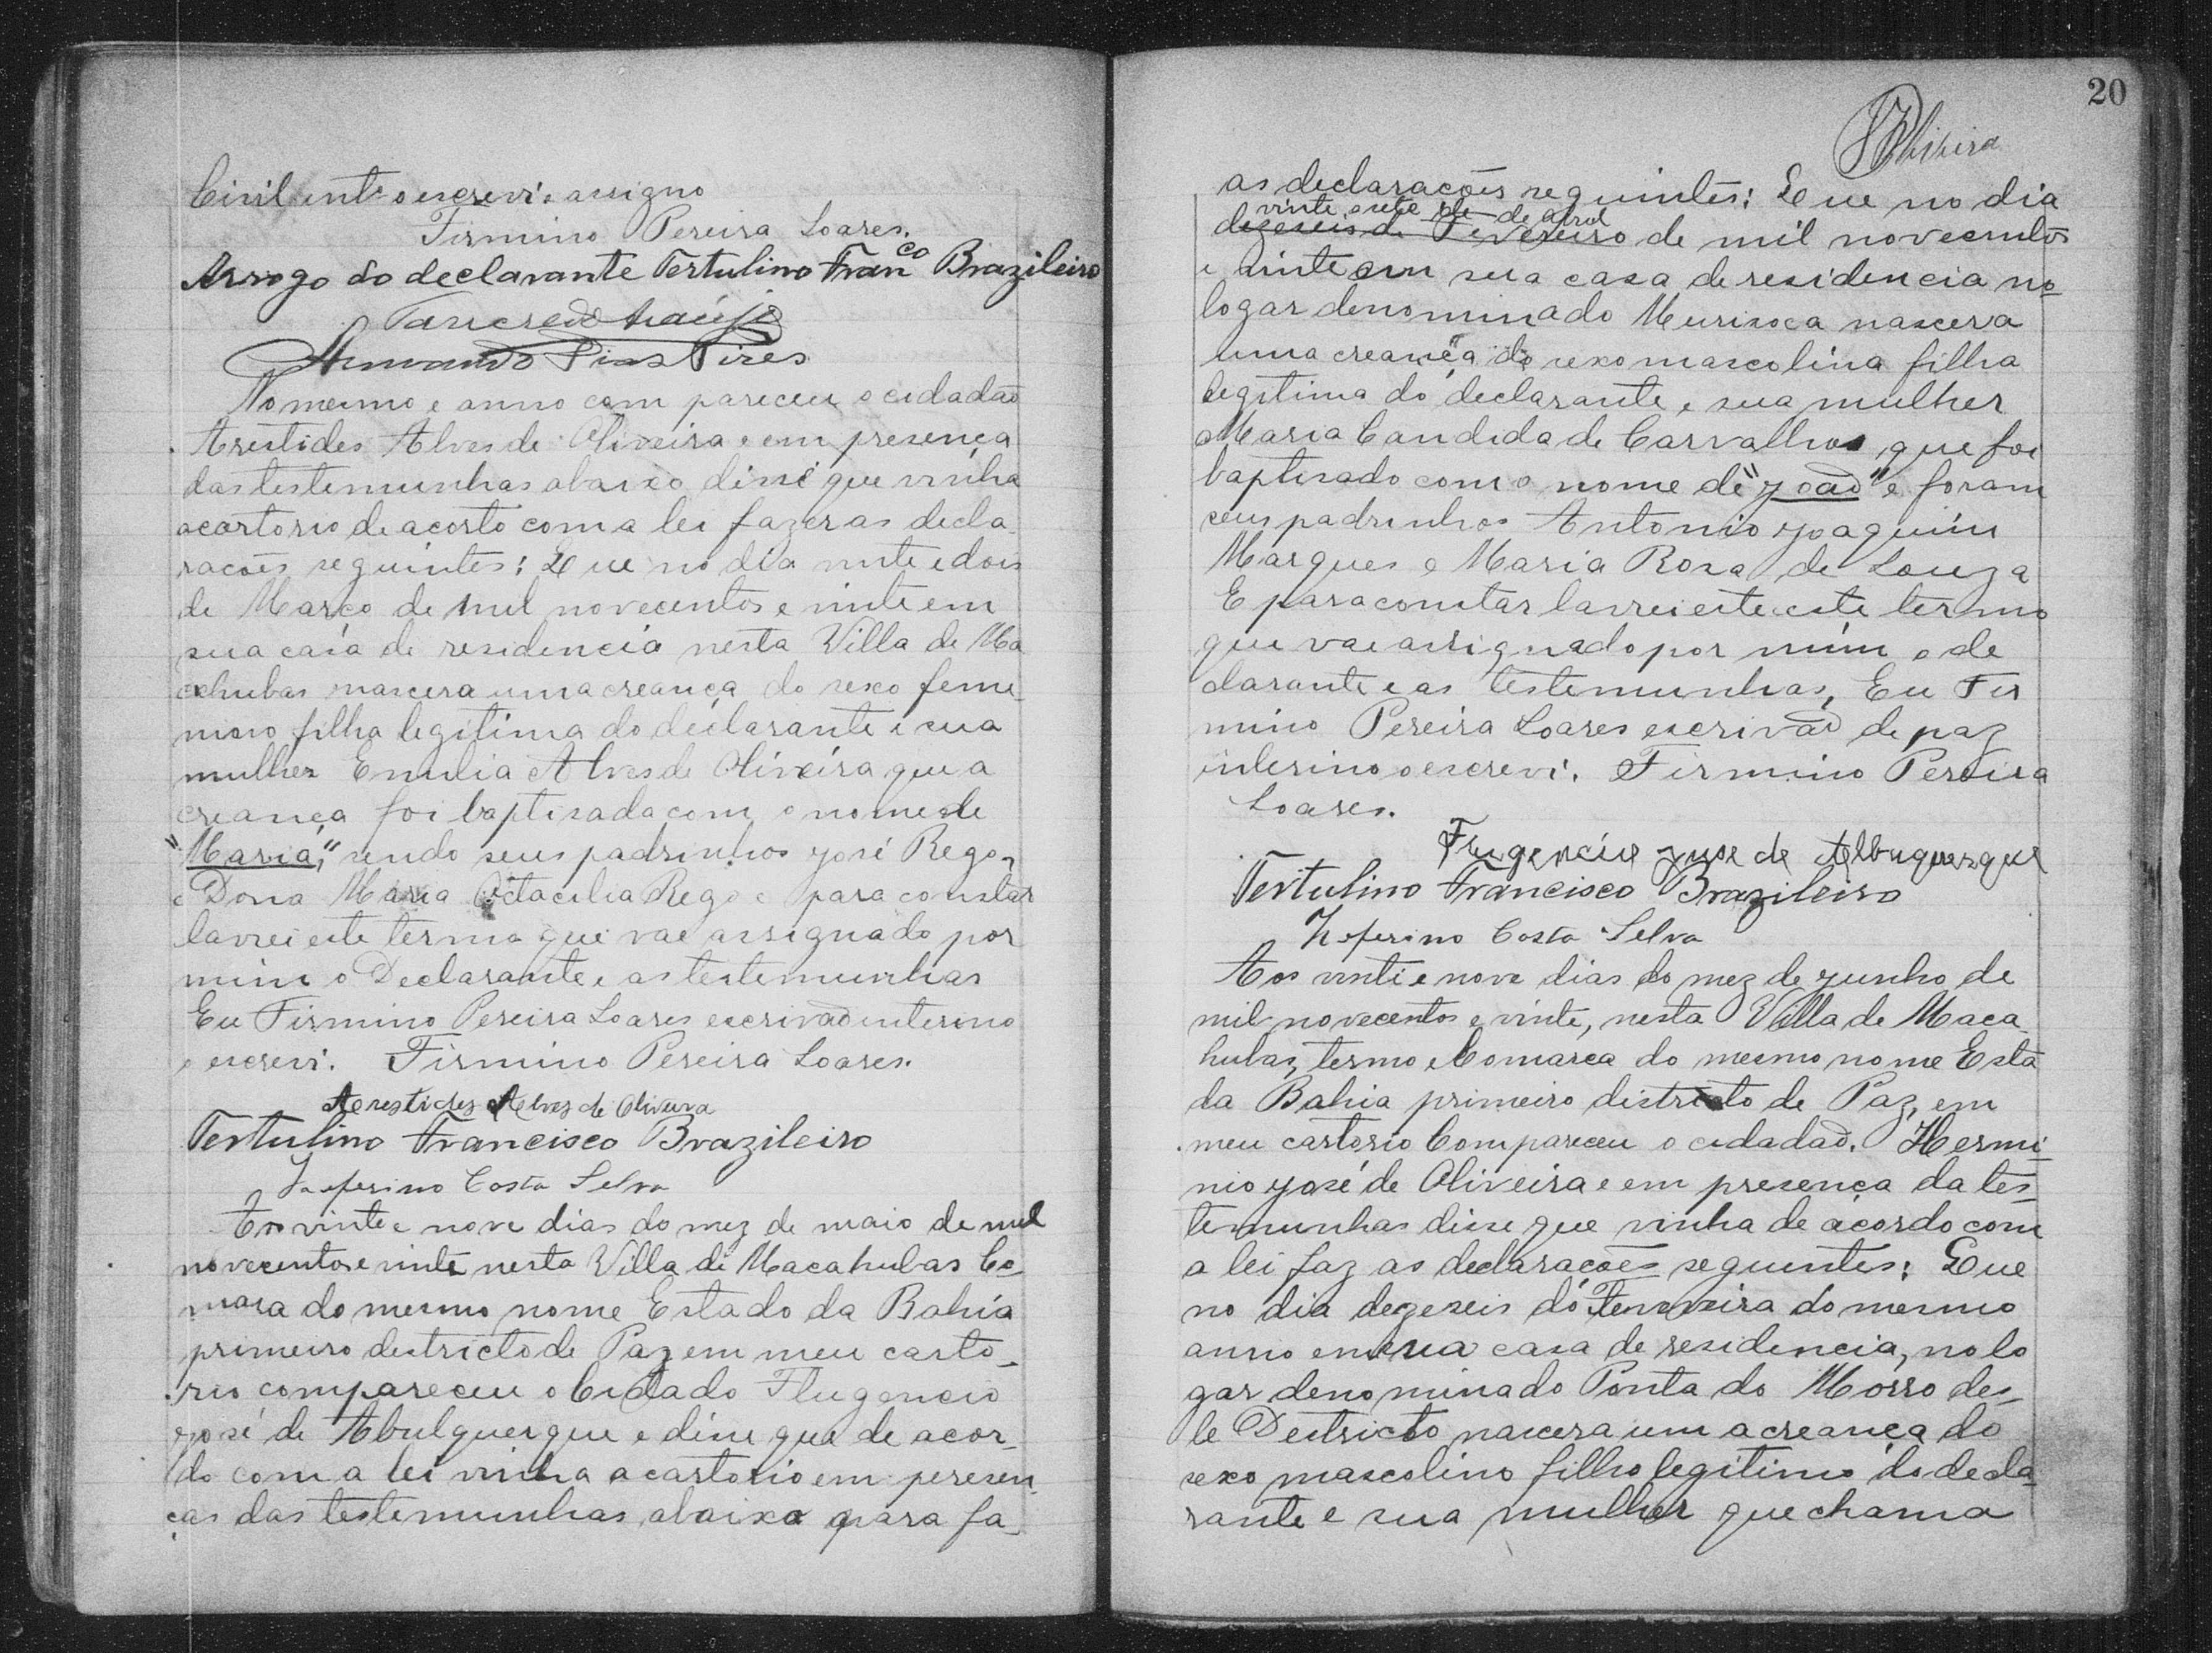 Civil int.º o escrevi e assigno
Firmino Pereira Soares.
Arrogo do declarante Tertulino Franco Brazileiro
Tancredo Araújo
Armando Pires
No mesmo e anno com pareceu o cidadão
Arestides Alves de Oliveira e em presença
das testemunhas abaixo disse que vinha
acartorio de acorto com a lei fazer as decla
rações seguintes: Que no dia vinte e dois
de Março de mil novecentos e vinte em
sua casa de residencia nesta Villa de Ma
cahubas nascera uma creança do sexo feme
nino filha legitima do declarante e sua
mulher Emilia Alves de Oliveira que a
creança foi baptisada com o nome de
"Maria", sendo seus padrinhos José Rego,
e Dona Maria Octacilia Rego e para constar
lavrei este termo que vae assignado por
mim o Declarante e as testemunhas
Eu Firmino Pereira Soares escrivão interino
o escrevi. Firmino Pereira Soares.
Arestides Alves de Oliveira
Tertulino Francisco Brazileiro
Zeferino Costa Selva
Aos vinte e nove dias do mez de maio de mil
novecentos e vinte nesta Villa de Macahubas Co
marca do mesmo nome Estado da Bahia
primeiro destricto de Paz em meu carto_
rio compareceu o Cidado Flugencio
José de Abulquerque e disse que de acor_
do com a lei vinha a cartorio em peresen_
ças das testemunhas abaixo para fa_
20
Oliveira
as declarações seguintes: Que no dia
vinte e sete de de abril
dezeseis de Fevereiro de mil novecentos
e vinte em sua casa de residencia no
logar denominado Murisoca nascera
uma creança do sexo mascolina filha
legitima do declarante e sua mulher
Maria Candida de Carvalhos que foi
baptisado com o nome de "João" e foram
seus padrinhos Antonio Joaquim
Marques e Maria Rosa de Souza
E para constar lavrei este este termo
que vae assignado por mim o de
clarante e as testemunhas, Eu Fir
mino Pereira Soares escrivão de paz
interino o escrevi. Firmino Pereira
Soares.
Frugencio Juse de Albuquerque
Tertulino Francisco Brazileiro
Zeferino Costa Selva
Aos vinte e nove dias do mez de junho de
mil novecentos e vinte, nesta Villa de Maca
hubas, termo e Comarca do mesmo nome Esta
da Bahia primeiro districto de Paz, em
meu cartorio Compareceu o cidadão. Hermi_
nio José de Oliveira e em presença da tes_
temunhas disse que vinha de acordo com
a lei faz as declarações seguentes: Que
no dia dezeseis do Fenvereira do mesmo
anno em sua casa de residencia, no lo
gar denominado Ponta do Morro des_
te Destricto nascera um a creança do
sexo mascolino filho legitimo do decla_
rante e sua mulher que chama